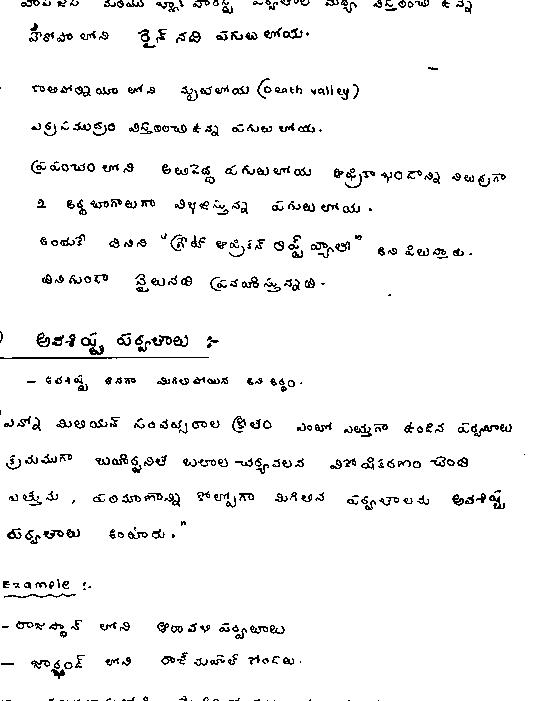 మరియు బ్లాక్ ఫారెస్ట్ పర్వతాల మధ్య విస్తరించి ఉన్న
లోని రైన్ నది పగులు లోయ.
కాలిఫోర్నియా లోని మృతలోయ (Death valley)
ఎర్రసముద్రం విస్తరించి ఉన్న పగులు లోయ.
ప్రపంచం లోని అతిపెద్ద పగులులోయ ఆఫ్రికా ఖండాన్ని నిలువుగా
2 అర్ధభాగాలుగా విభజిస్తున్న పగులు లోయ.
అందుకే దీనిని "గ్రేట్ ఆఫ్రికన్ రిఫ్ట్ వ్యాలీ" అని పిలుస్తారు.
దీనిగుండా నైలునది ప్రవహిస్తున్నది.
అవశిష్ట పర్వతాలు :-
- అవశిష్ట అనగా మిగిలిపోయిన అని అర్థం.
"ఎన్నో మిలియన్ సంవత్సరాల క్రితం ఎంతో ఎత్తుగా ఉండిన పర్వతాలు
క్రమముగా బహిర్జనిత బలాల చర్యవలన వికోషీకరణం చెంది
ఎత్తును, పరిమాణాన్ని కోల్పోగా మిగిలిన పర్వతాలను అవశిష్ట
పర్వతాలు అంటారు."
Example :-
- రాజస్థాన్ లోని ఆరావళి పర్వతాలు
- జార్ఖండ్ లోని రాజ్ మహల్ కొండలు.